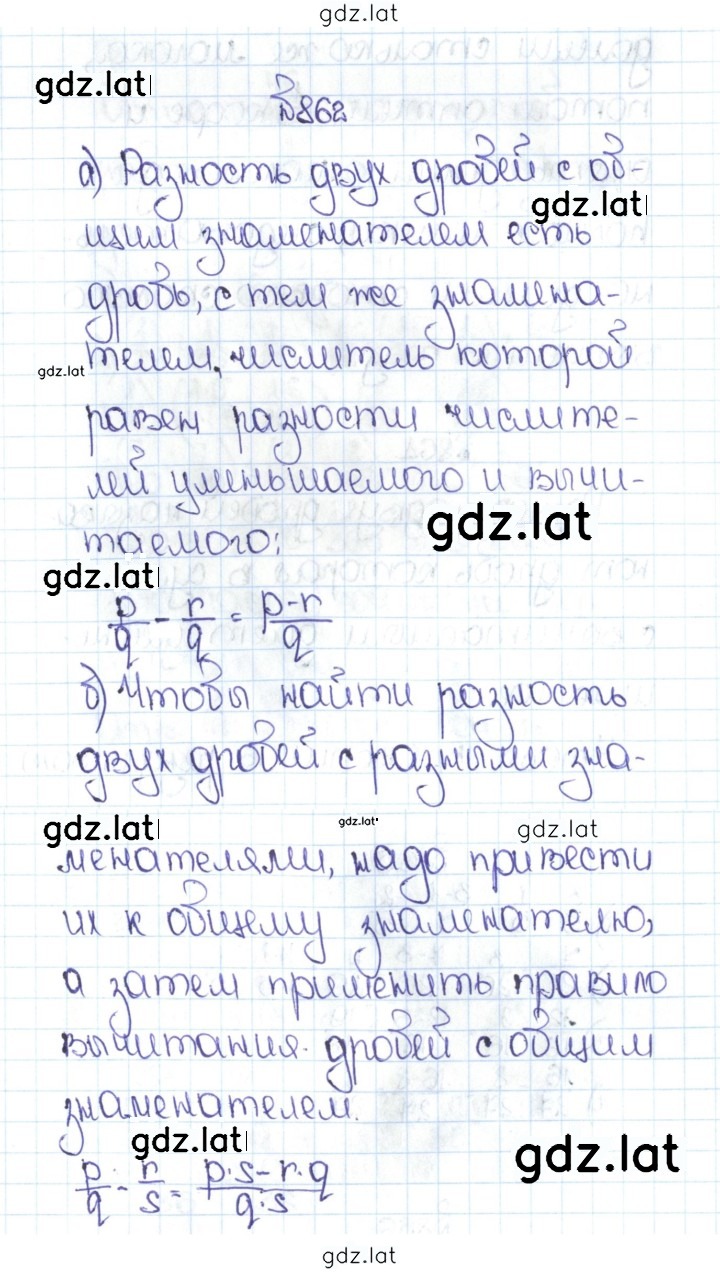 gdz.lat
gdz.lat
№862
а) Разность двух дробей с об-
gdz.lat
щим знаменателем есть
дробь, с тем же знамена-
gdz.lat
телем, числитель которой
равен разности числите-
лей уменьшаемого и вычи-
gdz.lat
таемого:
gdz.lat
p/q - r/q = p-r/q
б) Чтобы найти разность
двух дробей с разными зна-
gdz.lat gdz.lat gdz.lat
менателями, надо привести
их к общему знаменателю,
а затем применить правило
вычитания дробей с общим
знаменателем.
gdz.lat
gdz.lat
p/q - r/s = p·s-r·q/q·s
gdz.lat